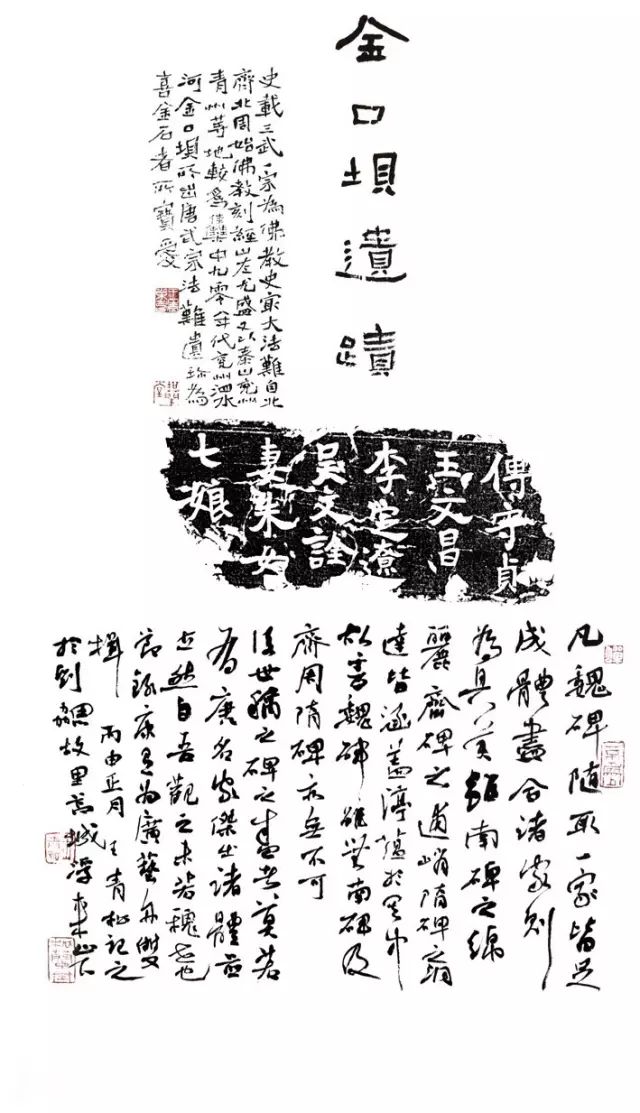 金口垻遺蹟
史載三武一宗為佛教史最大法難自北
齊北周始佛教刻經山左尤盛又以泰山兗州
青州等地較為集中九零年代兗州泗水
河金口垻所出唐武宗法難遺珍為
喜金石者所寶愛
傅守貞
王文昌
李定遼
吳文詮
妻朱女
七娘
凡魏碑隨取一家皆足
成體盡合諸家則
為具美雖南碑之綿
麗齊碑之逋峭隋碑之洞
達皆涵蓋渟蘊於其中
故言魏碑雖無南碑及
齊周隋碑亦無不可
後世稱之碑之盛者莫若
有唐名家傑出諸體並
立然自吾觀之未若魏世也
節錄康有為廣藝舟雙
楫 丙申正月 王青松記之
於劉勰故里莒城浮來山下